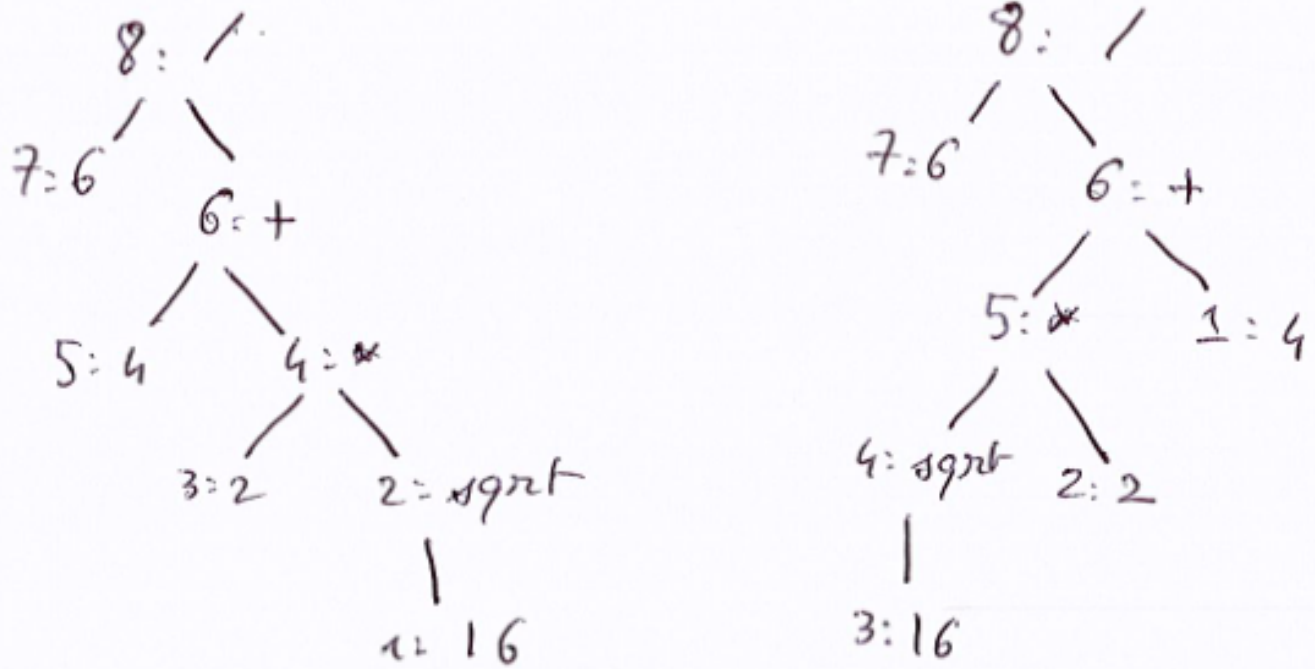 8: /
7:6
6: +
5:4
4: *
3:2
2: sqrt
1: 16
8: /
7:6
6: +
5: *
1:4
4: sqrt
2:2
3:16